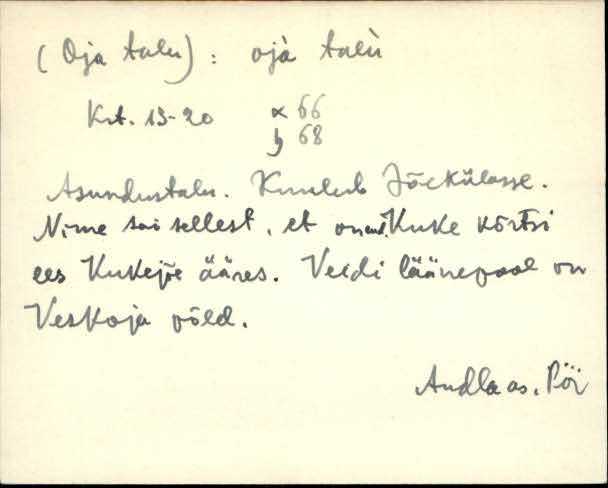 (Oja talu): ojà talù
Krt. 13-20 x 66
y 68
Asundustalu. Kuulub Jõekülasse.
Nime sai sellest, et on Kuke kõrtsi
ees Kukejõe ääres. Veidi läänepool on
Veskoja põld.
Audla as. Pöi